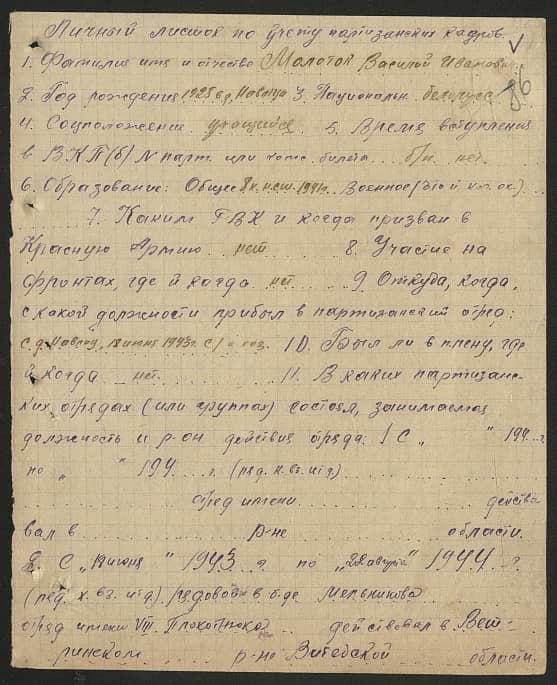 Личный листок по учету партизанских кадров.
1. Фамилия имя и отчество Молоток Василий Иванович
2. Год рождения 1925 в д. Навлуа 3. Национальн. белорус 86
4. Соцположение учащийся 5. Время вступления
в ВКП(б) N парт. или комс. билета б/п. нет.
6. Образование: Общее 8 к. 1941г. Военное(
7. Каким ГВК и когда призван в
Красную Армию нет 8. Участие на
фронтах, где и когда нет. 9 Откуда, когда,
с какой должности прибыл в партизанский отряд:
с д. июня 1943г. 10. Был ли в плену, где
и когда нет. 11. В каких партизанс-
ких отрядах (или группах) состоял, занимаемая
должность и р-он действия отряда: 1 С „ " 194 г.
по „ " 194 г. (ряд. к. вз. и т д.)
отряд имени действо
вал в р-не области.
2. С „19 июня " 1943 г по „ " 1944 г
(ряд. к. вз. и т д.) рядовой в б-де Мельникова
отряд имени VIII. действовал в Вет-
ринском р-не Витебской области.